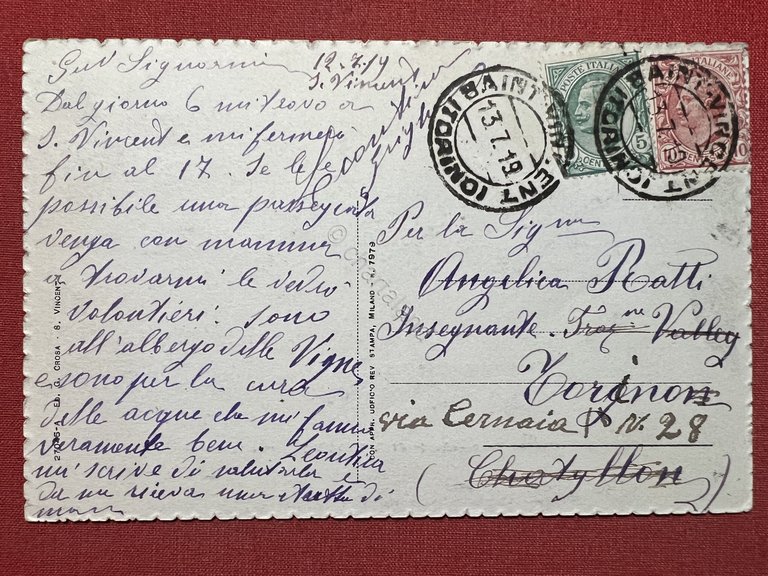 Gent Signorina
12.7.19
S. Vincent
Dal giorno 6 mi trovo a
S. Vincent e mi fermerò
fin al 17. Se le è
possibile una passeggiata
venga con mamma
a trovarmi le vedrò
volontieri. Sono
all'albergo delle Vigne
e sono per la cura
delle acque che mi fanno
veramente bene. Leontina
mi scrive di salutarla e
da me riceva una stretta di
mano
SAINT-VINCENT (GNIROTI B
13.7.19
POSTE ITALIANE
5
CENT
SAINT-VINCENT (GNIROTI B
10
CENT
Per la Signa
Angelica Ratti
Insegnante - Frazne Valley
Torino
via Cernaia N. 28
(Chatyllon)
27096-A - ED. G. CROSA - S. VINCENT
CON APPR. UFFICIO REV. STAMPA, MILANO - N. 7979